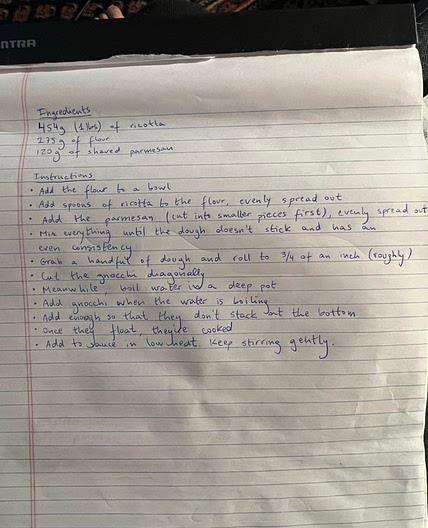 NTRA
Ingredients
454g (1 lbs) of ricotta
275g of flour
120g of shaved parmesan
Instructions
• Add the flour to a bowl
• Add spoons of ricotta to the flour, evenly spread out
• Add the parmesan (cut into smaller pieces first), evenly spread out
• Mix everything until the dough doesn't stick and has an
even consistency
• Grab a handful of dough and roll to 3/4 of an inch (roughly)
• Cut the gnocchi diagonally
• Meanwhile, boil water in a deep pot
• Add gnocchi when the water is boiling
• Add enough so that they don't stack at the bottom
• Once they float, they're cooked
• Add to sauce in low heat. Keep stirring gently.